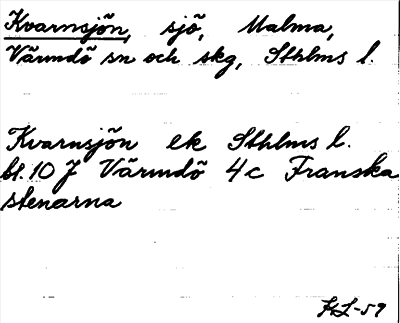 Kvarnsjön, sjö, Malma,
Värmdö sn och skg, Sthlms l.
Kvarnsjön ek Sthlms l.
bl. 10 J Värmdö 4c Franska
stenarna
HL-59